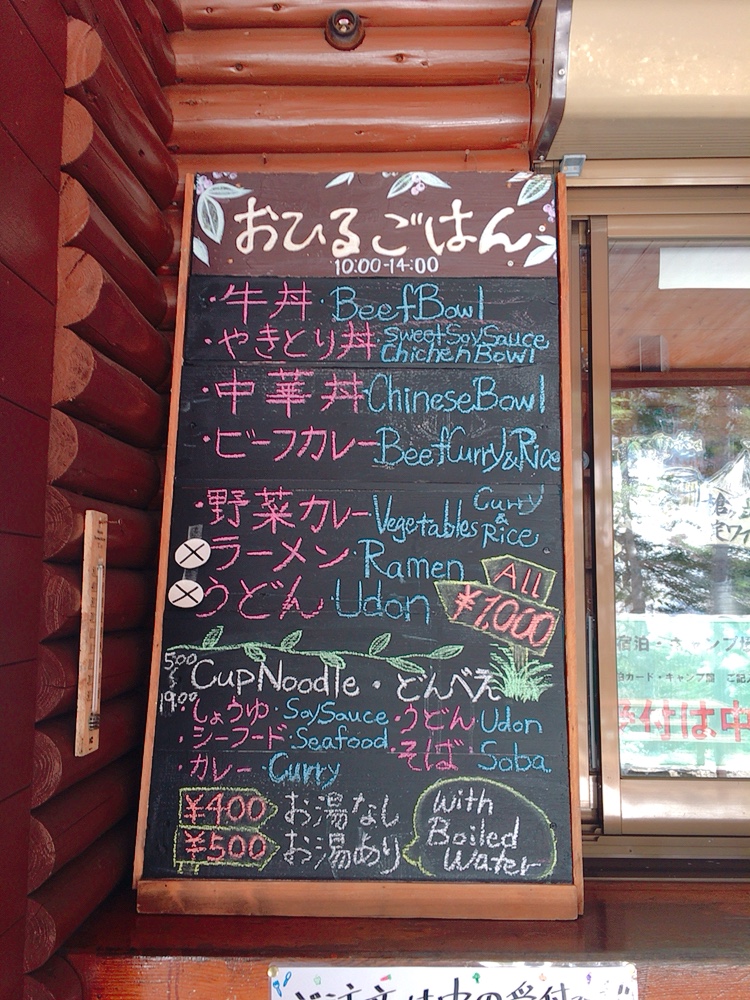 おひるごはん
10:00-14:00
・牛丼・BeefBowl
・やきとり丼 SweetSoySauce
ChichenBowl
・中華丼ChineseBowl
・ビーフカレーBeefCurry&Rice
・野菜カレーVegetables Curry
& Rice
ラーメン・Ramen
うどん・Udon
All
¥1,000
5:00
19:00
CupNoodle・どんべえ
・しょうゆ・SoySauce・うどん Udon
・シーフード・Seafood・そば Soba
・カレー・Curry
¥400 お湯なし
¥500 お湯あり
With
Boiled
Water
宿泊・キャンプ
カード・キャンプ
受付は中